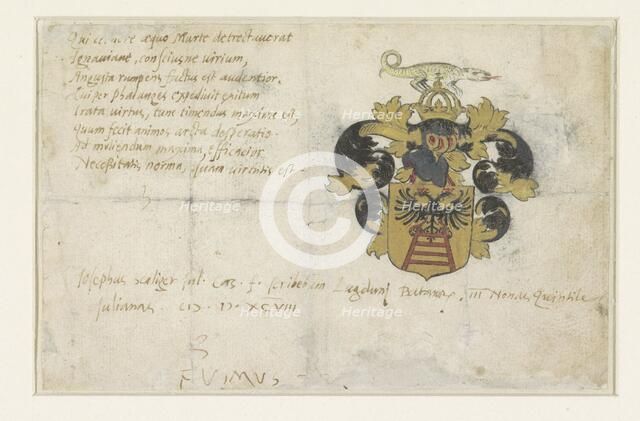 Qui cernere æquo Marte detrectaverat
Ignaviane, consciusne virium,
Angusta rumpens factus est audentior.
Qui per Phalanges expedivit exitum
Irata virtus, tunc timenda maxime est,
quum fecit animos arcta desperatio.
Ad muliendum maxima, efficacior
Necessitatis norma, quam virtutis est.
Josephus Scaliger Jul. Cæs. f. scribebam Lugduni Batavor. III Nonas Quintile
Julianas. CIƆ IƆ XCVIII
FVIMVS
Heritage
Heritage
Heritage
Heritage
Heritage
Heritage
Heritage
Heritage
C